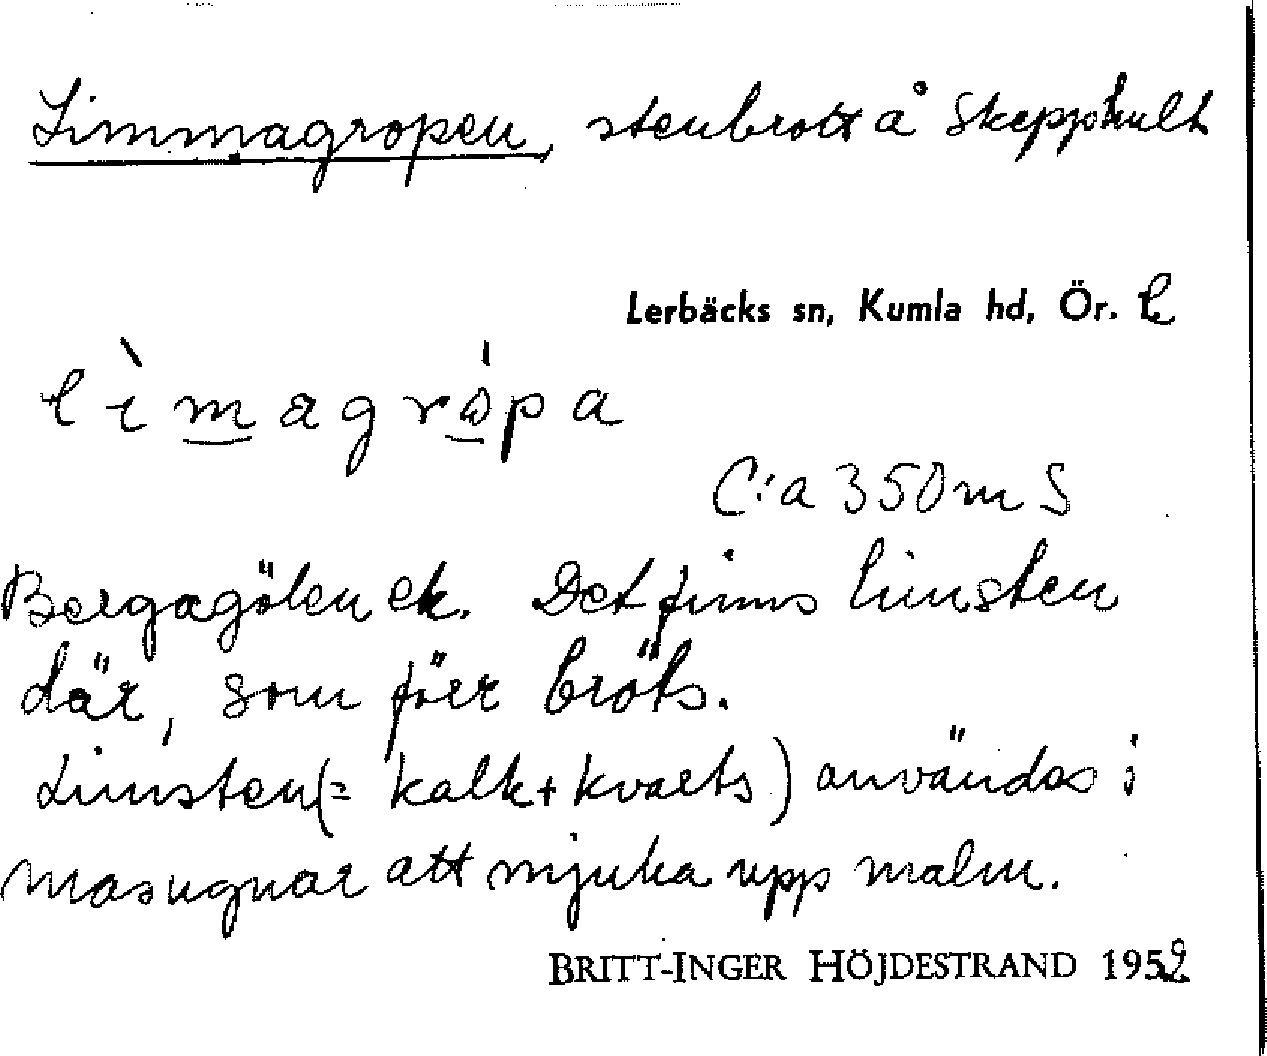 Limmagropen, stenbrott å Skepphult
Lerbäcks sn, Kumla hd, Ör. L
lìmagrópa
C:a 350 m S
Bergagölen ek. Det finns limsten
där, som förr bröts.
Limsten (= kalk + kvarts) användes i
masugnar att mjuka upp malm.
BRITT-INGER HÖJDESTRAND 1952